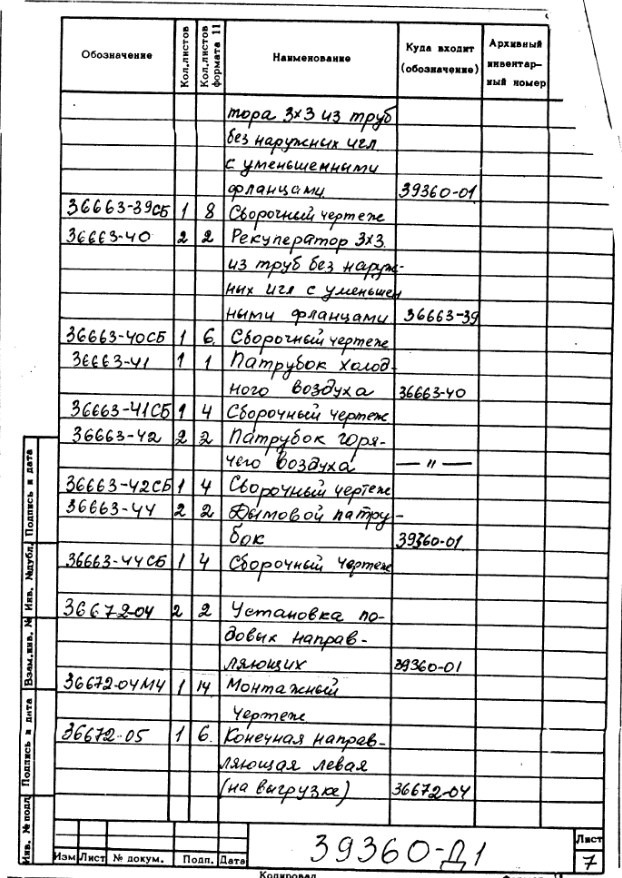 Обозначение Кол.листов Кол.листов формата 11 Наименование Куда входит (обозначение) Архивный инвентарный номер
тора 3х3 из труб
без наружных игл
с уменьшенными
фланцами 39360-01
36663-39СБ 1 8 Сборочный чертеж
36663-40 2 2 Рекуператор 3х3
из труб без наруж-
ных игл с уменьшен
ными фланцами 36663-39
36663-40СБ 1 6. Сборочный чертеж
36663-41 1 1 Патрубок холод-
ного воздуха 36663-40
36663-41СБ 1 4 Сборочный чертеж
36663-42 2 2 Патрубок горя-
чего воздуха — " —
36663-42СБ 1 4 Сборочный чертеж
36663-44 2 2 Дымовой патру-
бок 39360-01
36663-44СБ 1 4 Сборочный чертеж
36672-04 2 2 Установка по-
довых направ-
ляющих 39360-01
36672-04МЧ 1 14 Монтажный
чертеж
36672-05 1 6. Конечная направ-
ляющая левая
(на выгрузке) 36672-04
Инв. № подл Подпись и дата Взам.инв. № Инв. №дубл. Подпись и дата
Изм Лист № докум. Подп. Дата
39360-Д1
Лист
7
Копировал